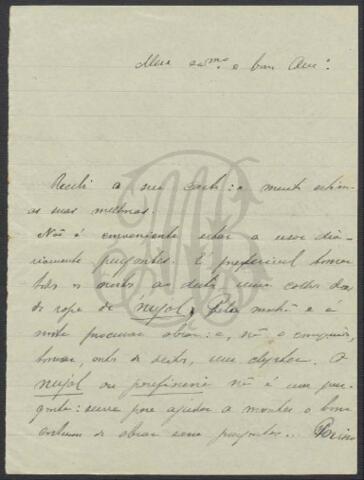 Meu carmo e bom Amº
Recebi a sua carta: e muito estimo
as suas melhoras.
Não é conveniente estar a usar dia-
riamente purgantes. É preferivel tomar
todas as noites ao deitar, uma colher das
de sopa de Nujol. Pela manhã e á
noite procurar obrar: e, não o conseguindo,
tomar, antes de deitar, um clyster. O
Nujol ou parafinina não é um pur-
gante: serve para ajudar a manter o bom
costume de obrar sem purgantes...